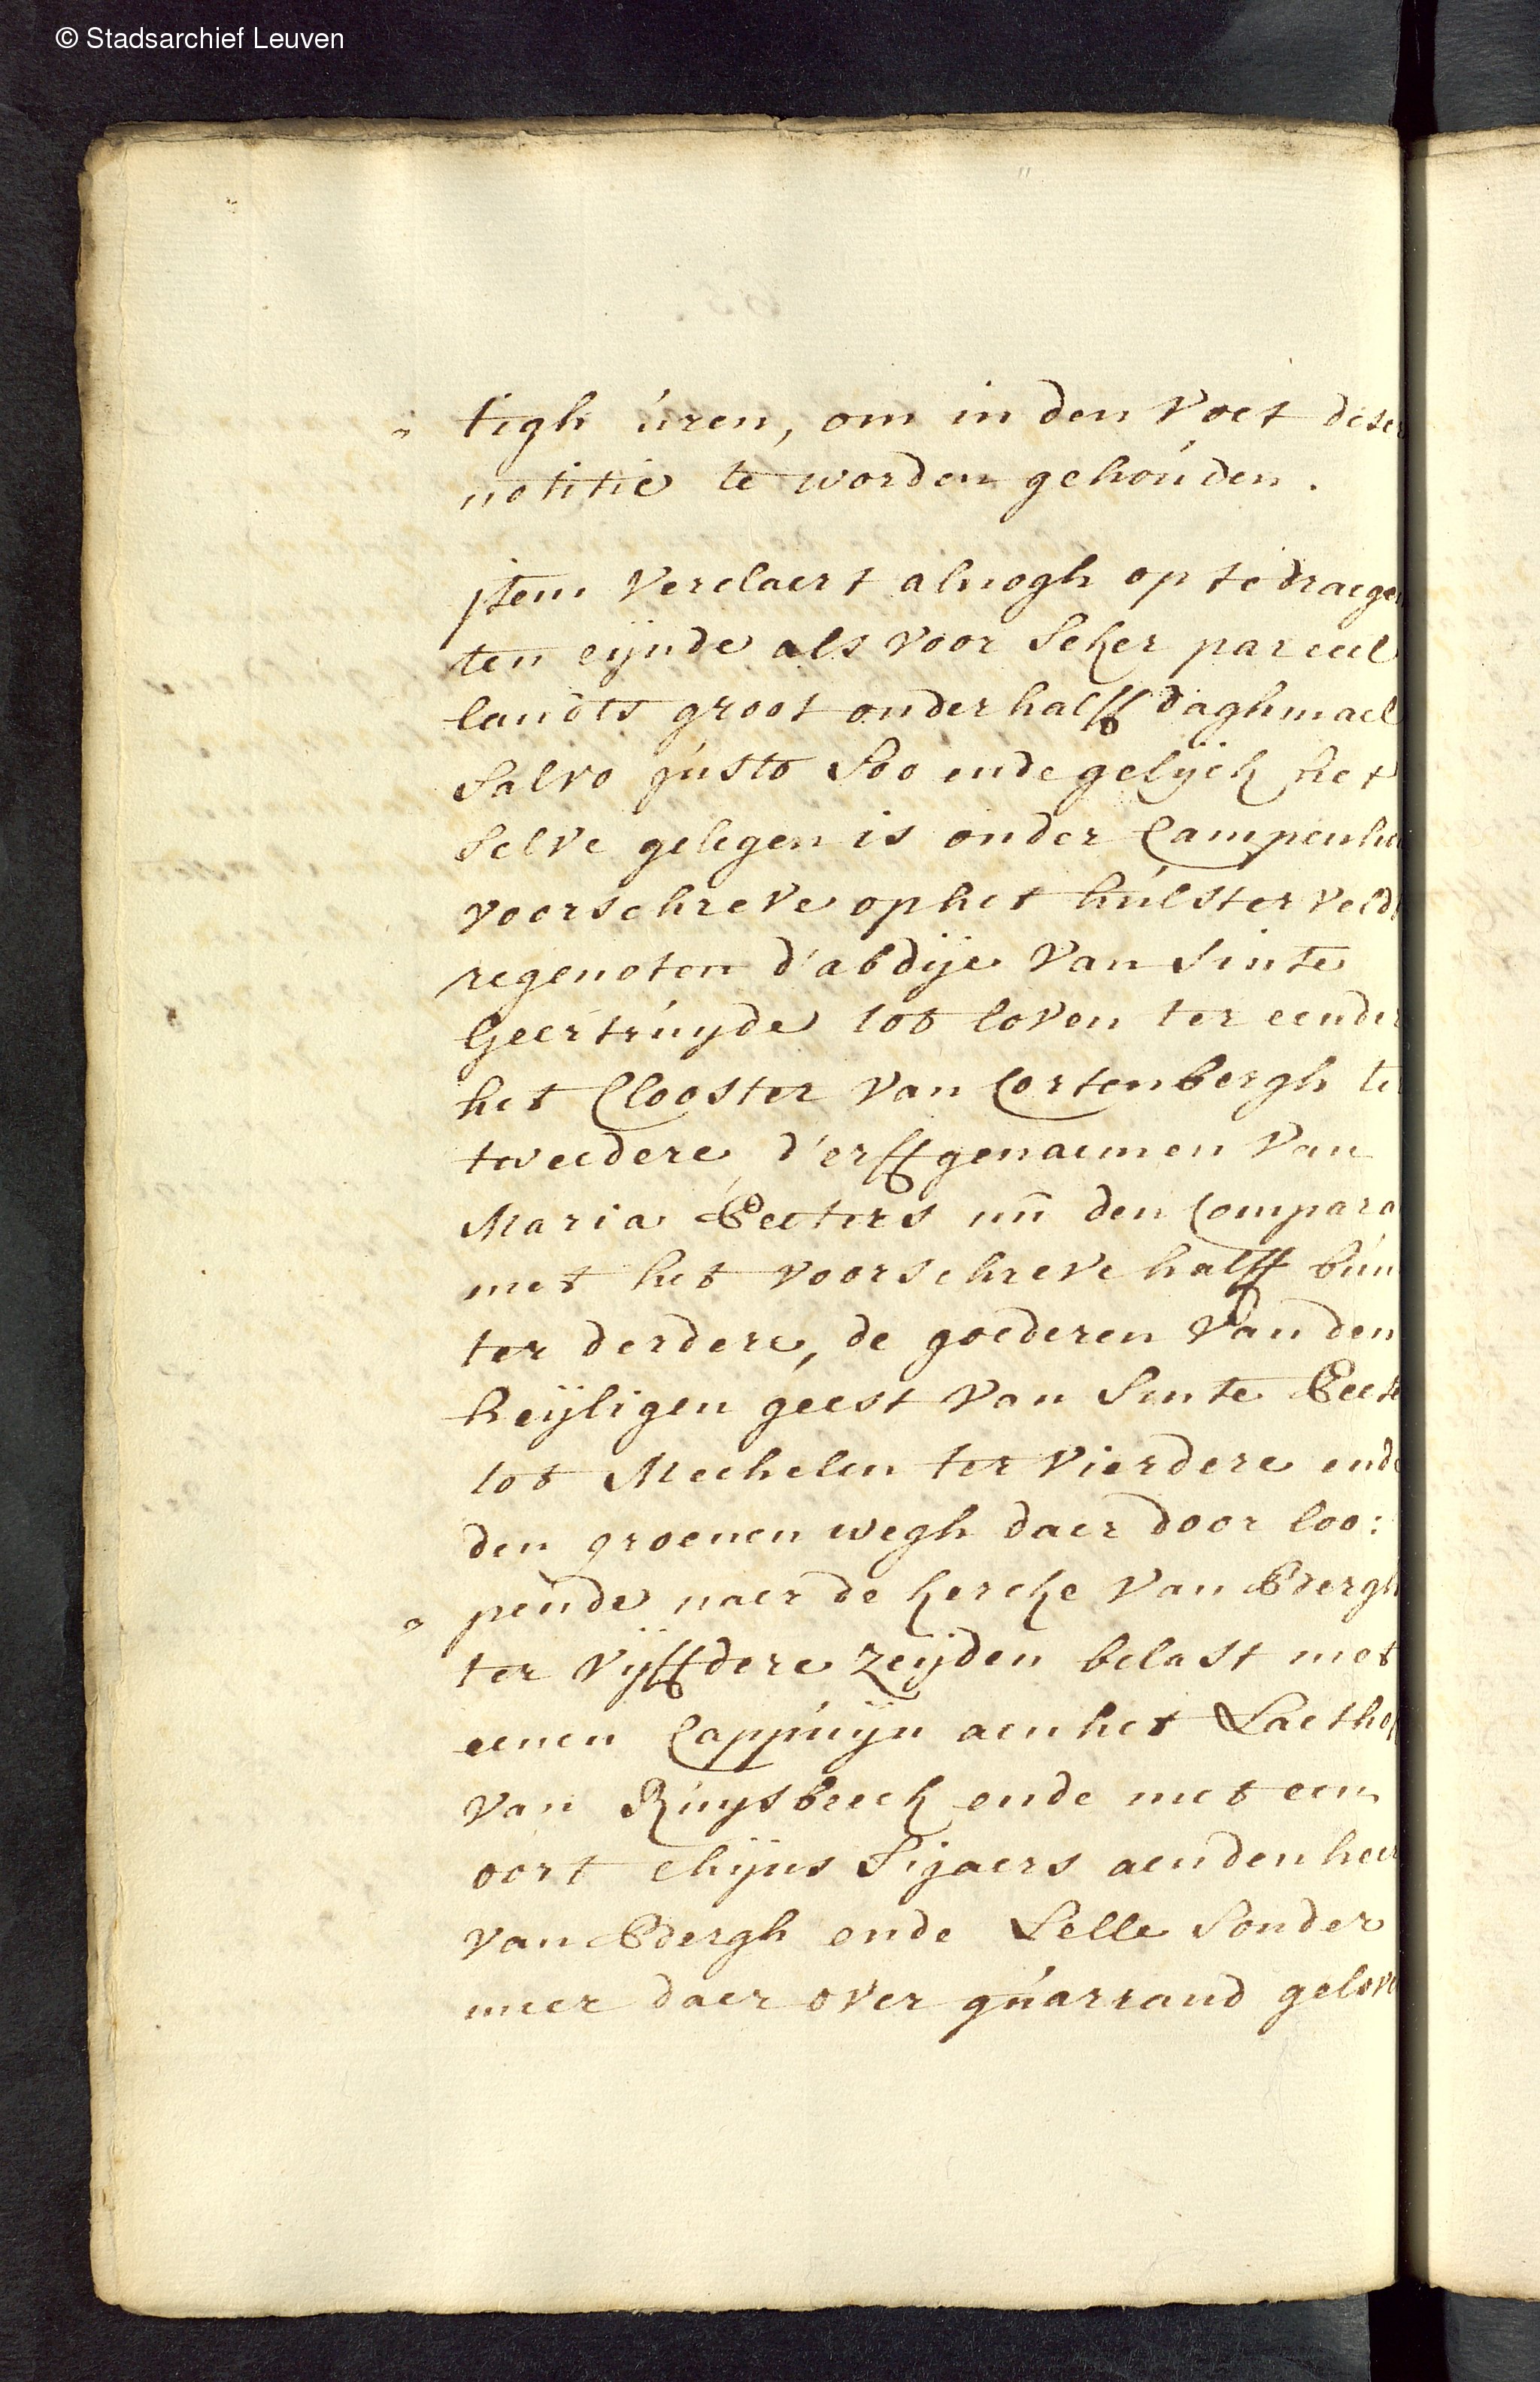 © Stadsarchief Leuven
tigh úren, om in den voet deser
notitie te worden gehoúden.
jtem verclaert alnogh op te draegen
ten eijnde als voor seker parceel
landts groot onderhalff daghmael
salvo justo soo ende gelijck het
selve gelegen is onder Campenhou
voorschreve op het húlster veldt
regenoten d'abdije van sinte
Geertruijde tot loven ter eender
het Clooster van Cortenbergh ter
tweedere, d'erffgenaemen van
Maria Peeters nu den Compara
met het voorschreve halff bún
ter derdere, de goederen van den
heijligen geest van Sinte Peete
tot Mechelen ter vierdere ende
den groenen wegh daer door loo:
pende naer de kercke van Bergh
ter vijffdere zeijden belast met
eenen Cappúijn aen het Laethof
van Ruijsbeeck ende met een
oort chijns sijaers aen den heer
van Bergh ende Lelle sonder
meer daer over guarrand gelove